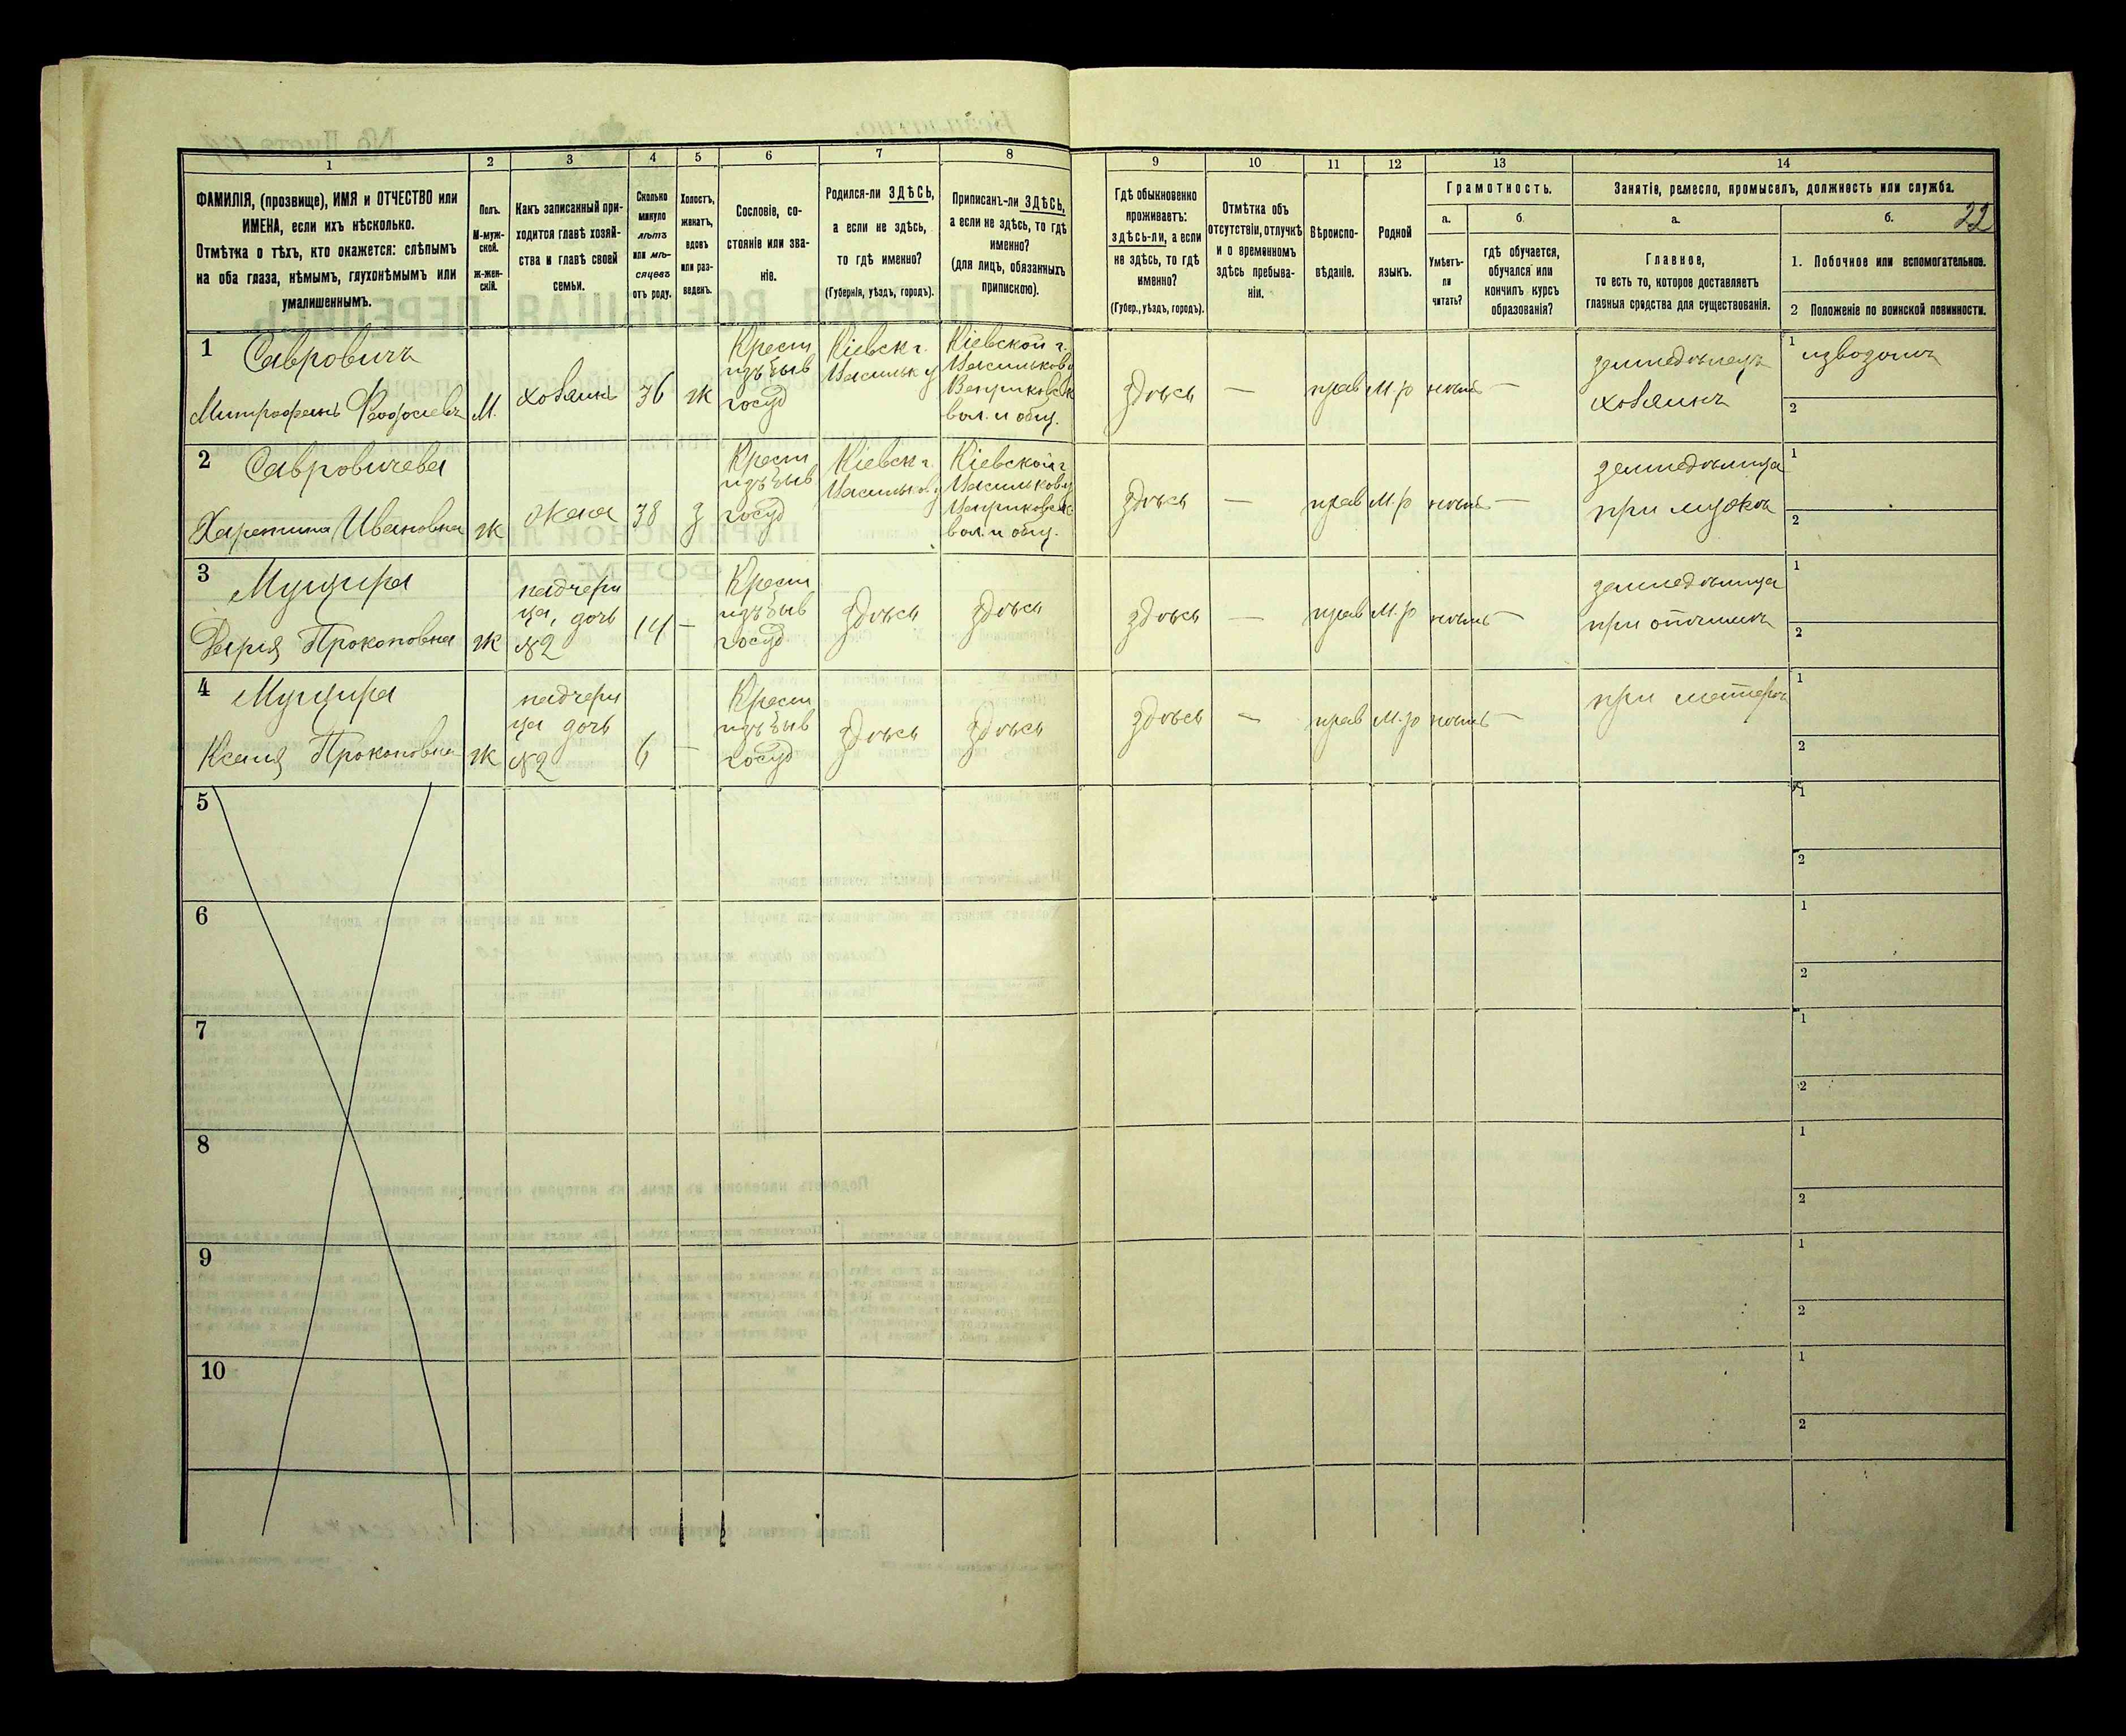 1 2 3 4 5 6 7 8 9 10 11 12 13 14
ФАМИЛІЯ, (прозвище), ИМЯ и ОТЧЕСТВО или
ИМЕНА, если ихъ нѣсколько.
Отмѣтка о тѣхъ, кто окажется: слѣпымъ
на оба глаза, нѣмымъ, глухонѣмымъ или
умалишеннымъ.
Полъ.
М-муж-
ской.
Ж-жен-
скій.
Какъ записанный при-
ходится главѣ хозяй-
ства и главѣ своей
семьи.
Сколько
минуло
лѣтъ
или мѣ-
сяцевъ
отъ роду.
Холостъ,
женатъ,
вдовъ
или раз-
веденъ.
Сословіе, со-
стояніе или зва-
ніе.
Родился-ли ЗДѢСЬ,
а если не здѣсь,
то гдѣ именно?
(Губернія, уѣздъ, городъ).
Приписанъ-ли ЗДѢСЬ,
а если не здѣсь, то гдѣ
именно?
(для лицъ, обязанныхъ
припискою).
Гдѣ обыкновенно
проживаетъ:
здѣсь-ли, а если
не здѣсь, то гдѣ
именно?
(Губер., уѣздъ, городъ).
Отмѣтка объ
отсутствіи, отлучкѣ
и о временномъ
здѣсь пребыва-
ніи.
Вѣроиспо-
вѣданіе.
Родной
языкъ.
Грамотность.
а.
Умѣетъ-
ли
читать?
б.
гдѣ обучается,
обучался или
кончилъ курсъ
образованія?
Занятіе, ремесло, промыселъ, должность или служба.
а.
Главное,
то есть то, которое доставляетъ
главныя средства для существованія.
б. 22
1. Побочное или вспомогательное.
2 Положеніе по воинской повинности.
1 Савровичъ
Митрофанъ Феодосіевъ
М.
хозяинъ
36
ж
Крест
изъ быв
госуд
Кіевск г.
Васильк у
Кіевской г.
Васильков у
Веприковск
вол. и общ.
здѣсь
—
прав
М.р
нѣтъ
—
земледѣлецъ
хозяинъ
1 извозомъ
2
2 Савровичева
Харитина Ивановна
ж
жена
38
з
Крест
изъ быв
госуд
Кіевск г.
Васильков у
Кіевской г
Васильков у
Веприковск
вол. и общ.
здѣсь
—
прав
М.р
нѣтъ
—
земледѣлица
при мужѣ
1
2
3
Дарія Прокоповна
ж
падчери
ца, дочь
№2
14
—
Крест
изъ быв
госуд
здѣсь
здѣсь
здѣсь
—
прав
М.р
нѣтъ
—
земледѣлица
при отчимѣ
1
2
4
Ксенія Прокоповна
ж
падчери
ца дочь
№2
6
—
Крест
изъ быв
госуд
здѣсь
здѣсь
здѣсь
—
прав
М.р
нѣтъ
—
при матерѣ
1
2
5
1
2
6
1
2
7
1
2
8
1
2
9
1
2
10
1
2